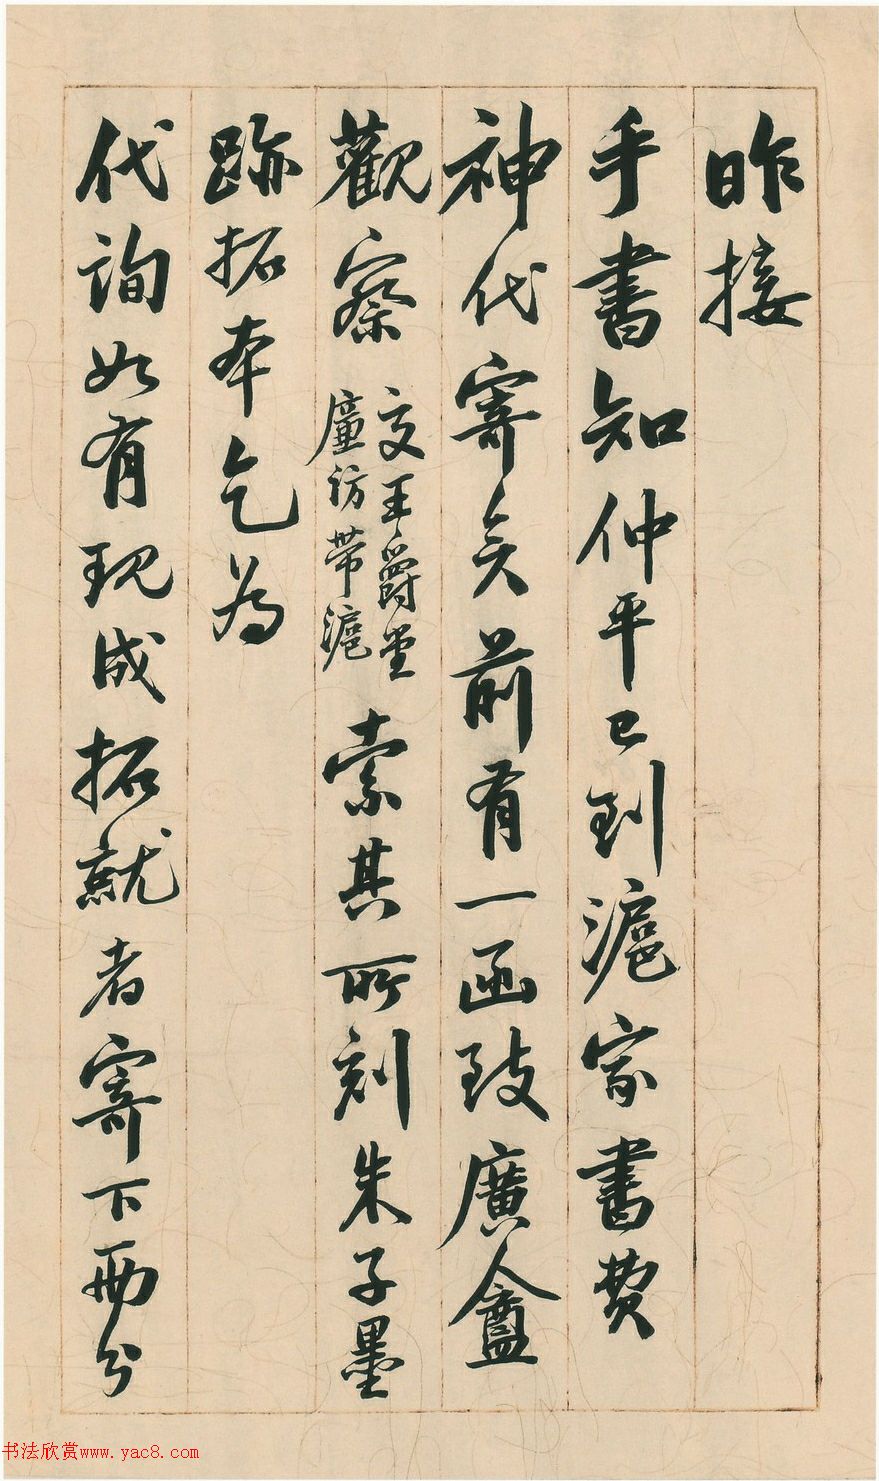 昨接
手書知仲平已到滬家書費
神代寄矣前有一函致廣盦
觀察
交王爵堂
廉訪帶滬
索其所刻朱子墨
跡拓本乞為
代詢如有現成拓就者寄下兩分
书法欣赏www.yac8.com